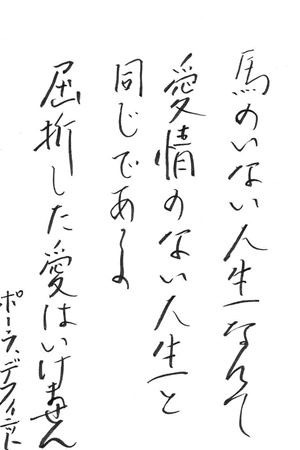 馬のいない人生なんて
愛情のない人生と
同じであるの
屈折した愛はいけません
ポーラ、デフィニット